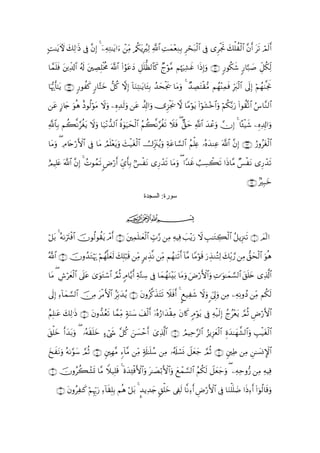 أَلَمْ تَرَ أَنَّ ٱلْفُلْكَ تَجْرِى فِى ٱلْبَحْرِ بِنِعْمَتِ ٱللَّهِ لِيُرِيَكُم مِّنْ ءَايَـٰتِهِۦٓ ۚ إِنَّ فِى ذَٰلِكَ لَـَٔايَـٰتٍ
لِّكُلِّ صَبَّارٍ شَكُورٍ ﴿٣١﴾ وَإِذَا غَشِيَهُم مَّوْجٌ كَٱلظُّلَلِ دَعَوُا۟ ٱللَّهَ مُخْلِصِينَ لَهُ ٱلدِّينَ فَلَمَّا
نَجَّىٰهُمْ إِلَى ٱلْبَرِّ فَمِنْهُم مُّقْتَصِدٌ ۚ وَمَا يَجْحَدُ بِـَٔايَـٰتِنَآ إِلَّا كُلُّ خَتَّارٍ كَفُورٍ ﴿٣٢﴾ يَـٰٓأَيُّهَا
ٱلنَّاسُ ٱتَّقُوا۟ رَبَّكُمْ وَٱخْشَوْا۟ يَوْمًا لَّا يَجْزِى وَالِدٌ عَن وَلَدِهِۦ وَلَا مَوْلُودٌ هُوَ جَازٍ عَن
وَالِدِهِۦ شَيْـًٔا ۚ إِنَّ وَعْدَ ٱللَّهِ حَقٌّ ۖ فَلَا تَغُرَّنَّكُمُ ٱلْحَيَوٰةُ ٱلدُّنْيَا وَلَا يَغُرَّنَّكُم بِٱللَّهِ
ٱلْغَرُورُ ﴿٣٣﴾ إِنَّ ٱللَّهَ عِندَهُۥ عِلْمُ ٱلسَّاعَةِ وَيُنَزِّلُ ٱلْغَيْثَ وَيَعْلَمُ مَا فِى ٱلْأَرْحَامِ ۖ وَمَا
تَدْرِى نَفْسٌ مَّاذَا تَكْسِبُ غَدًا ۖ وَمَا تَدْرِى نَفْسٌۢ بِأَىِّ أَرْضٍ تَمُوتُ ۚ إِنَّ ٱللَّهَ عَلِيمٌ
خَبِيرٌۢ ﴿٣٤﴾
سورة: السجدة
بِسْمِ ٱللَّهِ ٱلرَّحْمَـٰنِ ٱلرَّحِيمِ
الٓمٓ ﴿١﴾ تَنزِيلُ ٱلْكِتَـٰبِ لَا رَيْبَ فِيهِ مِن رَّبِّ ٱلْعَـٰلَمِينَ ﴿٢﴾ أَمْ يَقُولُونَ ٱفْتَرَىٰهُ ۚ بَلْ
هُوَ ٱلْحَقُّ مِن رَّبِّكَ لِتُنذِرَ قَوْمًا مَّآ أَتَىٰهُم مِّن نَّذِيرٍ مِّن قَبْلِكَ لَعَلَّهُمْ يَهْتَدُونَ ﴿٣﴾ ٱللَّهُ
ٱلَّذِى خَلَقَ ٱلسَّمَـٰوَٰتِ وَٱلْأَرْضَ وَمَا بَيْنَهُمَا فِى سِتَّةِ أَيَّامٍ ثُمَّ ٱسْتَوَىٰ عَلَى ٱلْعَرْشِ ۖ مَا
لَكُم مِّن دُونِهِۦ مِن وَلِىٍّ وَلَا شَفِيعٍ ۚ أَفَلَا تَتَذَكَّرُونَ ﴿٤﴾ يُدَبِّرُ ٱلْأَمْرَ مِنَ ٱلسَّمَآءِ إِلَى
ٱلْأَرْضِ ثُمَّ يَعْرُجُ إِلَيْهِ فِى يَوْمٍ كَانَ مِقْدَارُهُۥٓ أَلْفَ سَنَةٍ مِّمَّا تَعُدُّونَ ﴿٥﴾ ذَٰلِكَ عَـٰلِمُ
ٱلْغَيْبِ وَٱلشَّهَـٰدَةِ ٱلْعَزِيزُ ٱلرَّحِيمُ ﴿٦﴾ ٱلَّذِىٓ أَحْسَنَ كُلَّ شَىْءٍ خَلَقَهُۥ ۖ وَبَدَأَ خَلْقَ
ٱلْإِنسَـٰنِ مِن طِينٍ ﴿٧﴾ ثُمَّ جَعَلَ نَسْلَهُۥ مِن سُلَـٰلَةٍ مِّن مَّآءٍ مَّهِينٍ ﴿٨﴾ ثُمَّ سَوَّىٰهُ وَنَفَخَ
فِيهِ مِن رُّوحِهِۦ ۖ وَجَعَلَ لَكُمُ ٱلسَّمْعَ وَٱلْأَبْصَـٰرَ وَٱلْأَفْـِٔدَةَ ۚ قَلِيلًا مَّا تَشْكُرُونَ ﴿٩﴾
وَقَالُوٓا۟ أَءِذَا ضَلَلْنَا فِى ٱلْأَرْضِ أَءِنَّا لَفِى خَلْقٍ جَدِيدٍۭ ۚ بَلْ هُم بِلِقَآءِ رَبِّهِمْ كَـٰفِرُونَ ﴿١٠﴾